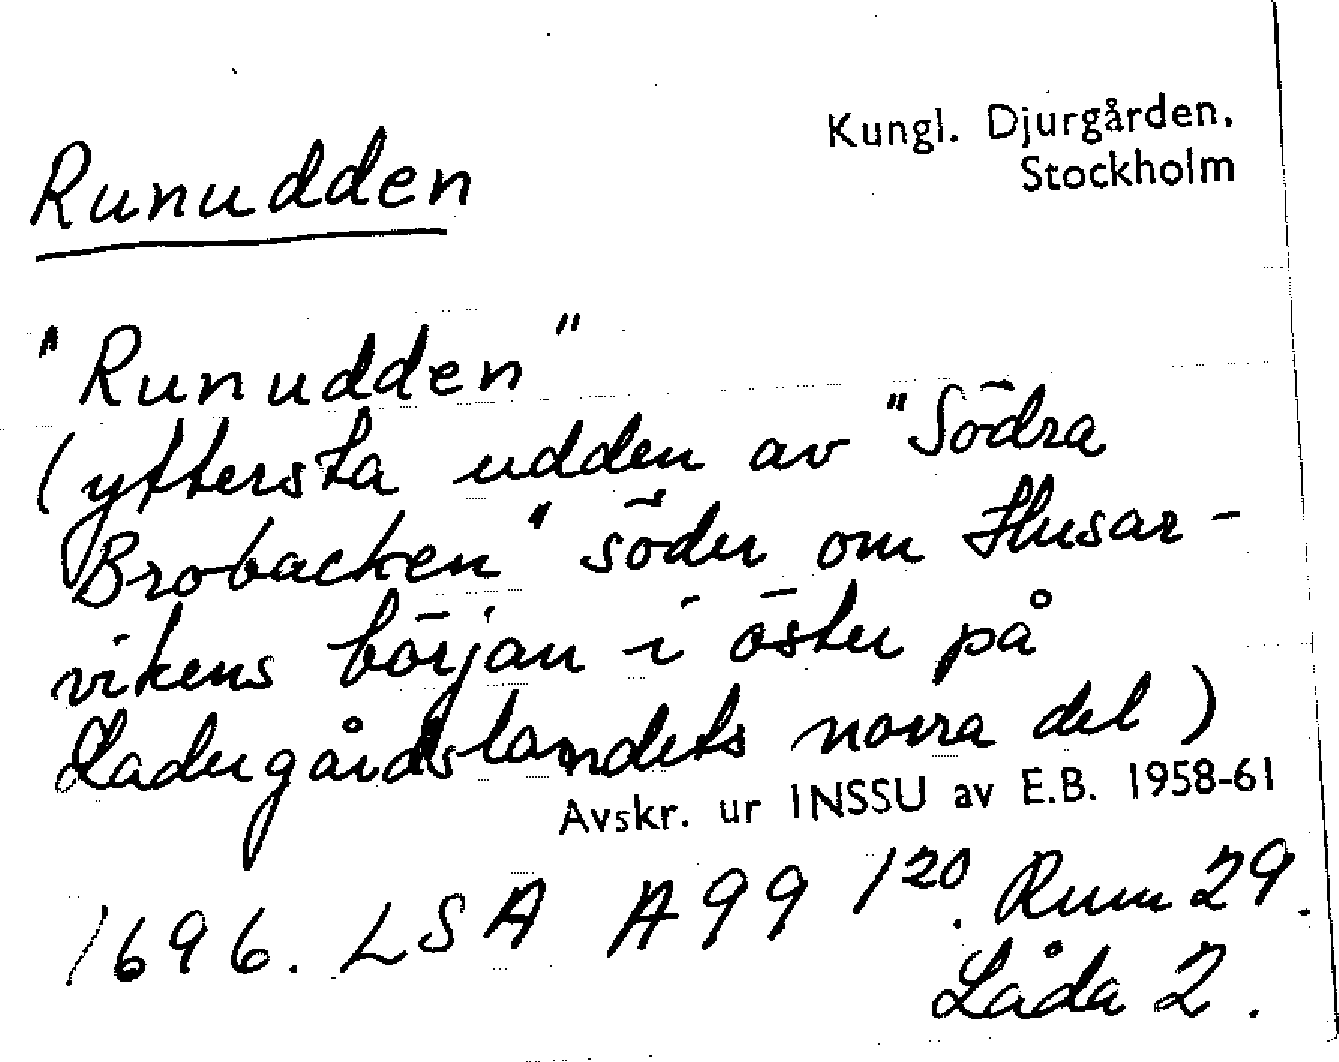 Kungl. Djurgården,
Stockholm
Runudden
"Runudden"
(yttersta udden av "Södra
Brobacken" söder om Husar-
vikens början i öster på
Ladugårdslandets norra del)
Avskr. ur INSSU av E.B. 1958-61
1696. LSA A99 1²⁰. Rum 29.
Låda 2.